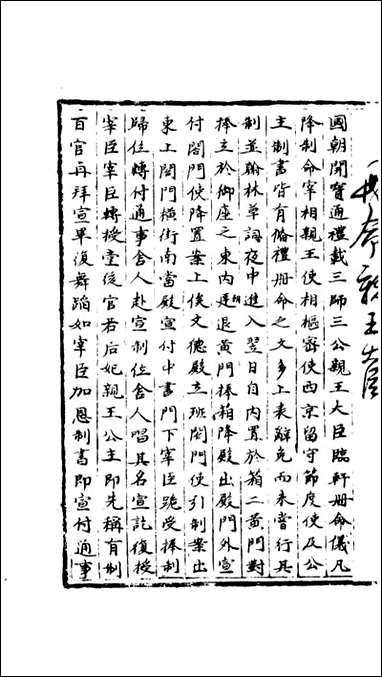 冊命親王大臣
國朝開寶通禮載三師三公親王大臣臨軒冊命儀凡
降制命宰相親王使相樞密使西京留守節度使及公
主制書皆有備禮冊命之文多上表辭免而未嘗行其
制並翰林草詞夜中進入翌日自內置於箱二黃門對
捧立於御座之東內朝退黃門捧箱降殿出殿門外宣
付閤門使降置案上俟文德殿立班閤門使引制案出
東上閤門橫街南當殿宣付中書門下宰臣跪受捧制
歸位轉付通事舍人赴宣制位舍人唱其名宣訖復授
宰臣宰臣轉授堂後官若后妃親王公主即先稱有制
百官再拜宣畢復舞蹈如宰臣加恩制書即宣付通事